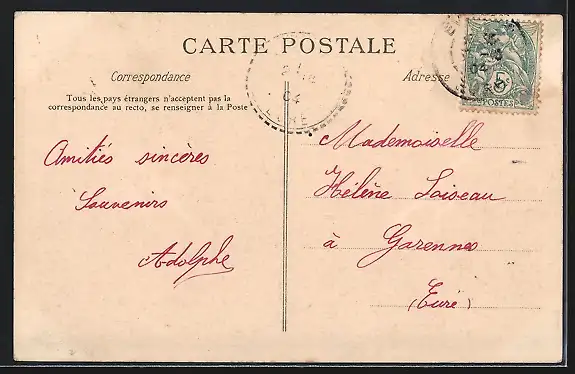 CARTE POSTALE
Correspondance
Adresse
Tous les pays étrangers n'acceptent pas la
correspondance au recto, se renseigner à la Poste
Amitiés sincères
Souvenirs
Adolphe
Mademoiselle
Hélène Loiseau
à Garennes
(Eure)
04
EURE
04
5c
POSTES